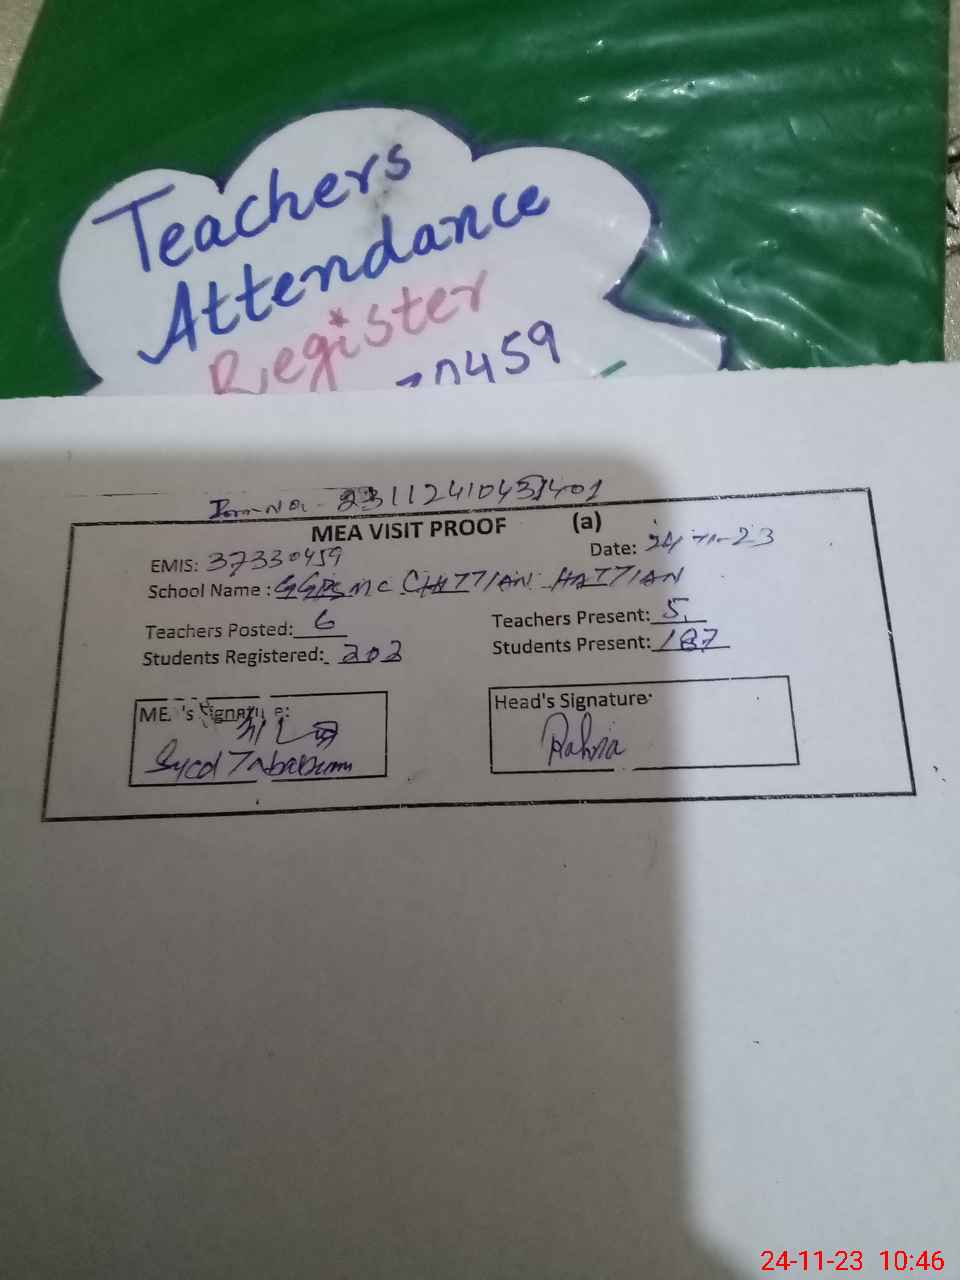 Teachers
Attendance
Register
70459
MEA VISIT PROOF (a)
EMIS: 37330459
Date: 24-11-23
School Name : GGPS MC CHITTIAN HATTIAN
Teachers Posted: 6
Teachers Present: 5
Students Registered: 202
Students Present: 187
MEA's Signature:
Syed Tabassum
Head's Signature:
Rahna
24-11-23 10:46